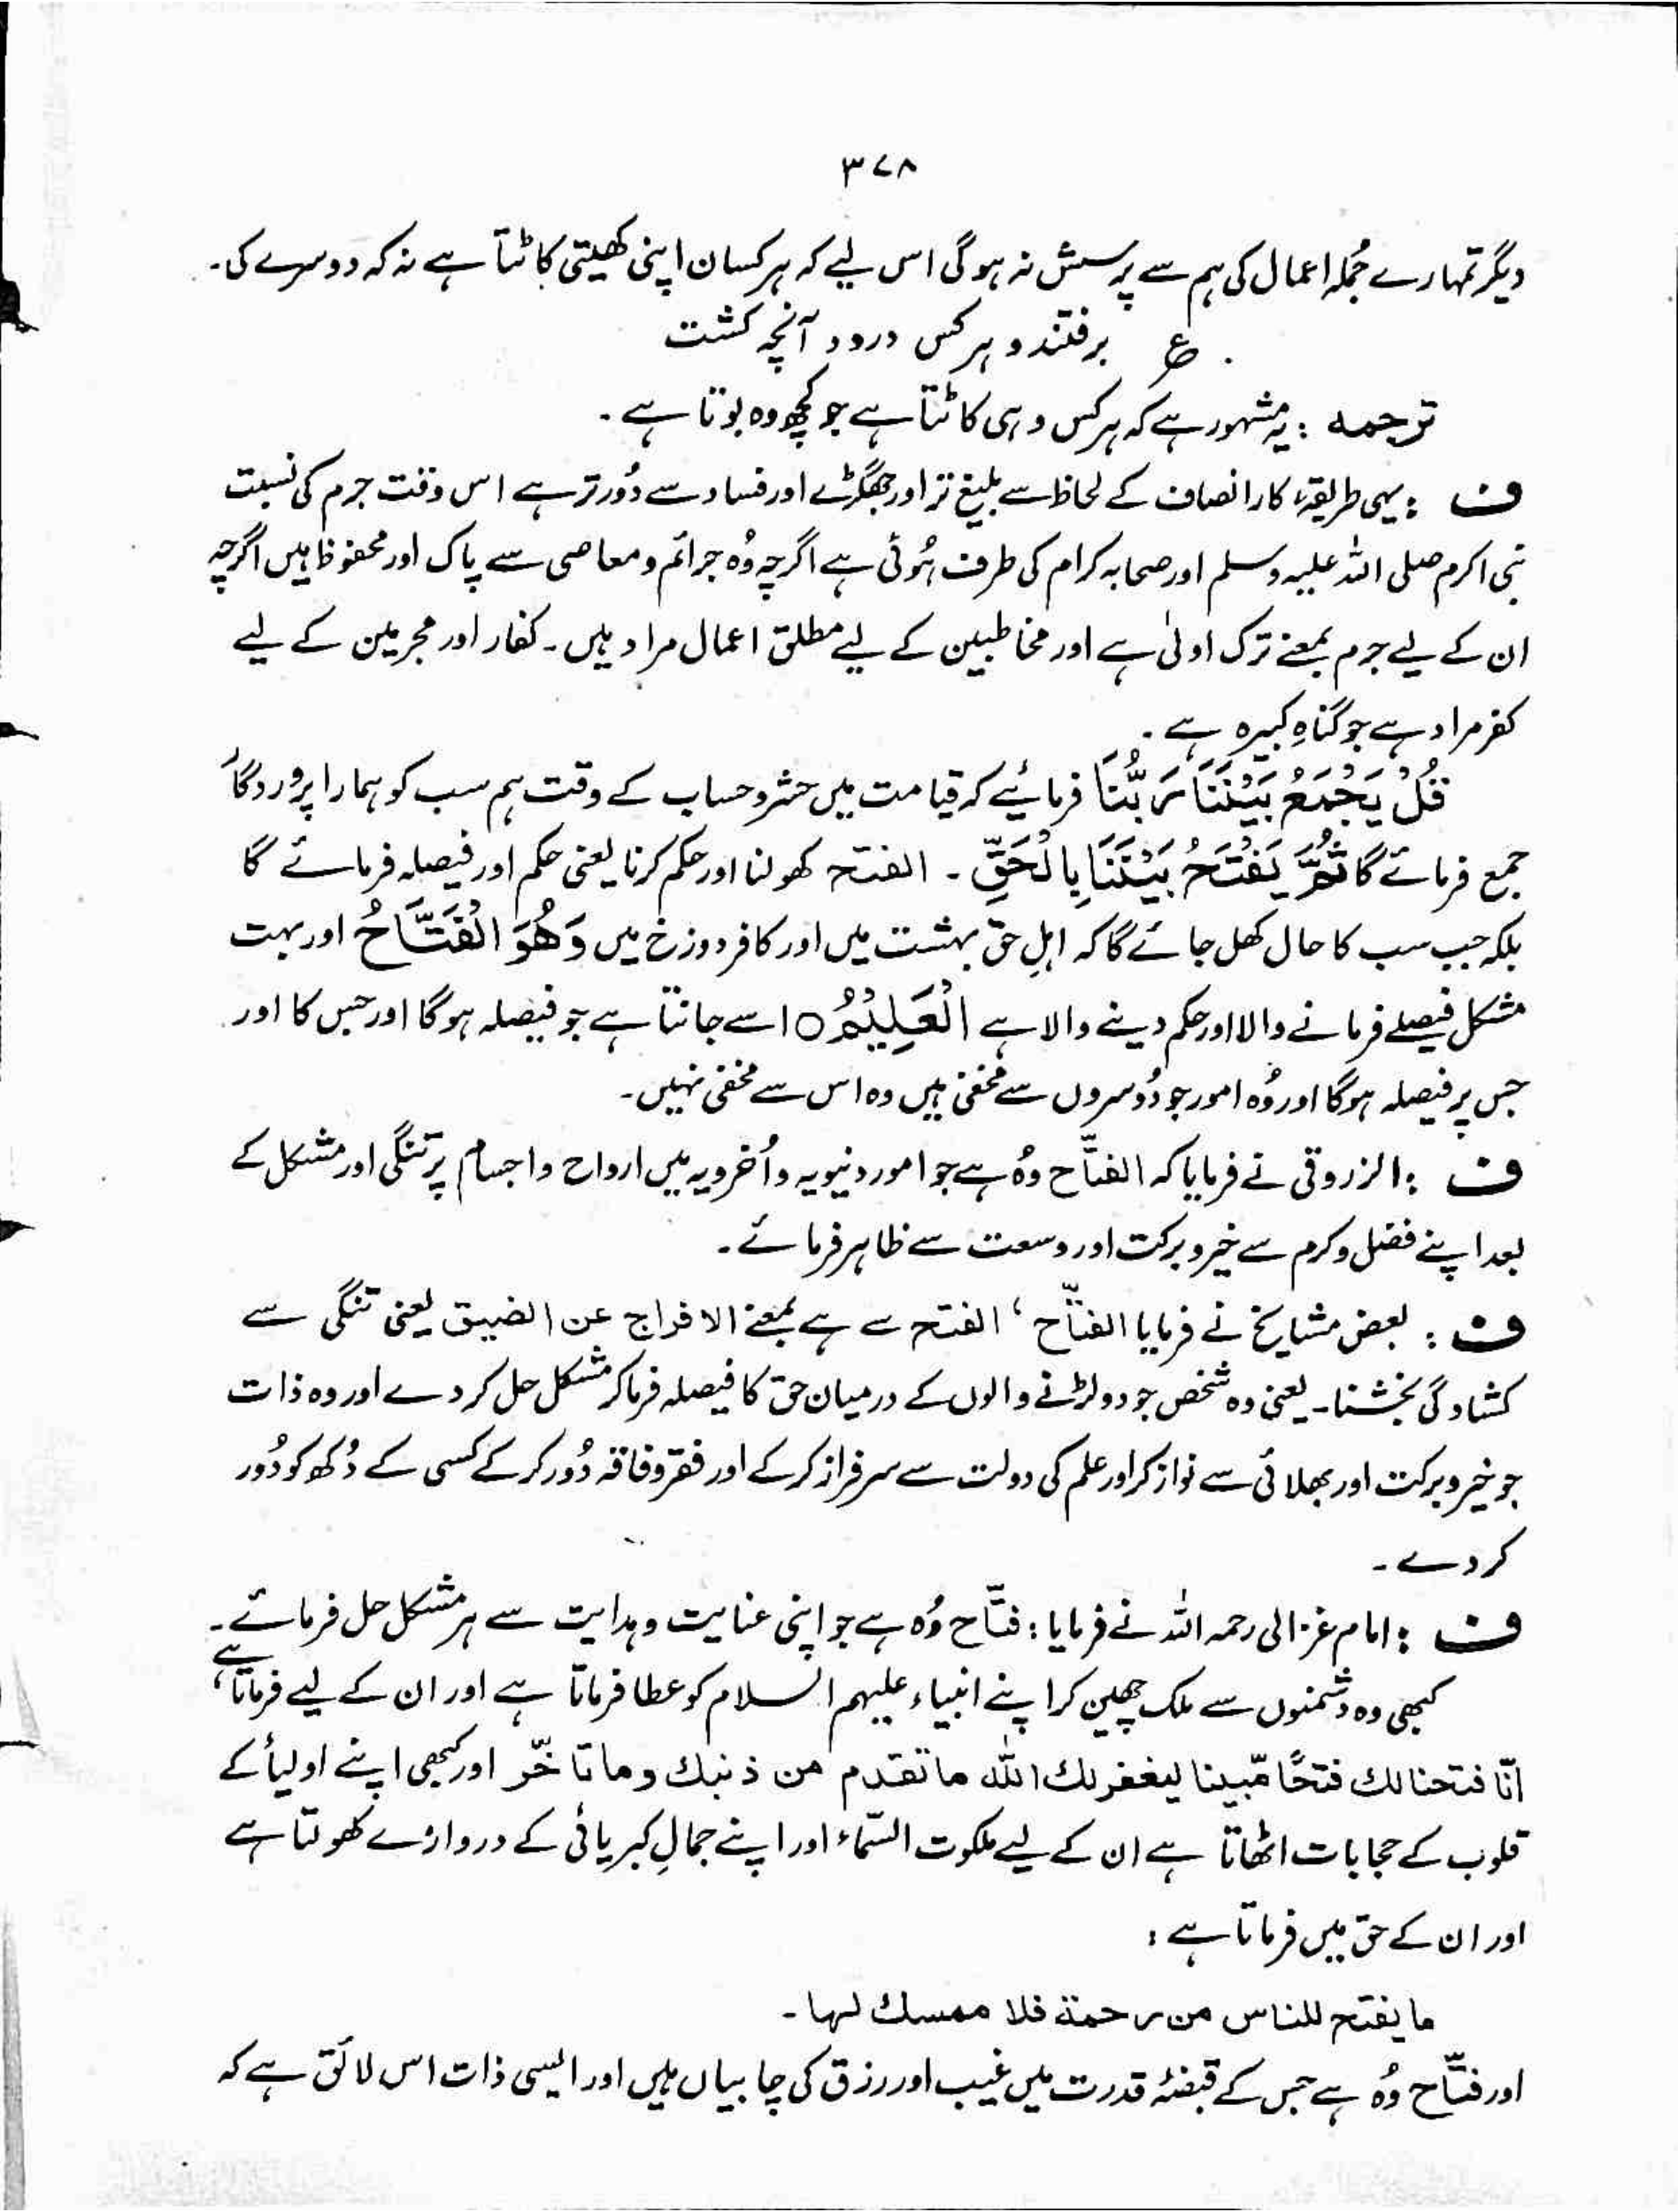 ۳۷۸
دیگر تمہارے جُملہ اعمال کی ہم سے پرسش نہ ہوگی اس لیے کہ ہر کسان اپنی کھیتی کاٹتا ہے نہ کہ دوسرے کی۔
ع برفتند و ہر کس درود آنچہ کشت
ترجمہ : یہ مشہور ہے کہ ہر کس وہی کاٹتا ہے جو کچھ وہ بوتا ہے۔
ف : یہی طریقۂ کار انصاف کے لحاظ سے بلیغ تر اور جھگڑے اور فساد سے دُور تر ہے اس وقت جرم کی نسبت
نبی اکرم صلی اللہ علیہ وسلم اور صحابہ کرام کی طرف ہُوئی ہے اگرچہ وُہ جرائم و معاصی سے پاک اور محفوظ ہیں اگرچہ
ان کے لیے جرم بمعنے ترک اولیٰ ہے اور مخاطبین کے لیے مطلق اعمال مراد ہیں۔ کفار اور مجرمین کے لیے
کفر مراد ہے جو گناہِ کبیرہ ہے۔
قُلْ يَجْمَعُ بَيْنَنَا رَبُّنَا فرمائیے کہ قیامت میں حشر و حساب کے وقت ہم سب کو ہمارا پروردگار
جمع فرمائے گا ثُمَّ يَفْتَحُ بَيْنَنَا بِالْحَقِّ ۔ الفتح کھولنا اور حکم کرنا یعنی حکم اور فیصلہ فرمائے گا
بلکہ جب سب کا حال کھل جائے گا کہ اہلِ حق بہشت میں اور کافر دوزخ میں وَهُوَ الْفَتَّاحُ اور بہت
مشکل فیصلے فرمانے والا اور حکم دینے والا ہے الْعَلِيْمُ ○ اسے جانتا ہے جو فیصلہ ہوگا اور جس کا اور
جس پر فیصلہ ہوگا اور وُہ امور جو دُوسروں سے مخفی ہیں وہ اس سے مخفی نہیں۔
ف : الزروقی نے فرمایا کہ الفتّاح وُہ ہے جو امور دنیویہ و اُخرویہ میں ارواح و اجسام پر تنگی اور مشکل کے
بعد اپنے فضل و کرم سے خیر و برکت اور وسعت سے ظاہر فرمائے۔
ف : بعض مشایخ نے فرمایا الفتّاح ، الفتح سے ہے بمعنے الافراج عن الضیق یعنی تنگی سے
کشادگی بخشنا۔ یعنی وہ شخص جو دو لڑنے والوں کے درمیان حق کا فیصلہ فرما کر مشکل حل کر دے اور وہ ذات
جو خیر و برکت اور بھلائی سے نواز کر اور علم کی دولت سے سرفراز کر کے اور فقر و فاقہ دُور کر کے کسی کے دُکھ کو دُور
کر دے۔
ف : امام غزالی رحمہ اللہ نے فرمایا : فتّاح وُہ ہے جو اپنی عنایت و ہدایت سے ہر مشکل حل فرمائے۔
کبھی وہ دشمنوں سے ملک چھین کر اپنے انبیاء علیہم السلام کو عطا فرماتا ہے اور ان کے لیے فرماتا ہے ،
انّا فتحنا لك فتحًا مّبینا لیغفر لك اللہ ما تقدم من ذنبك وما تاخّر اور کبھی اپنے اولیأ کے
قلوب کے حجابات اٹھاتا ہے ان کے لیے ملکوت السّماء اور اپنے جمالِ کبریائی کے دروازے کھولتا ہے
اور ان کے حق میں فرماتا ہے :
ما یفتح للناس من رحمة فلا ممسك لہا۔
اور فتّاح وُہ ہے جس کے قبضۂ قدرت میں غیب اور رزق کی چابیاں ہیں اور ایسی ذات اس لائق ہے کہ